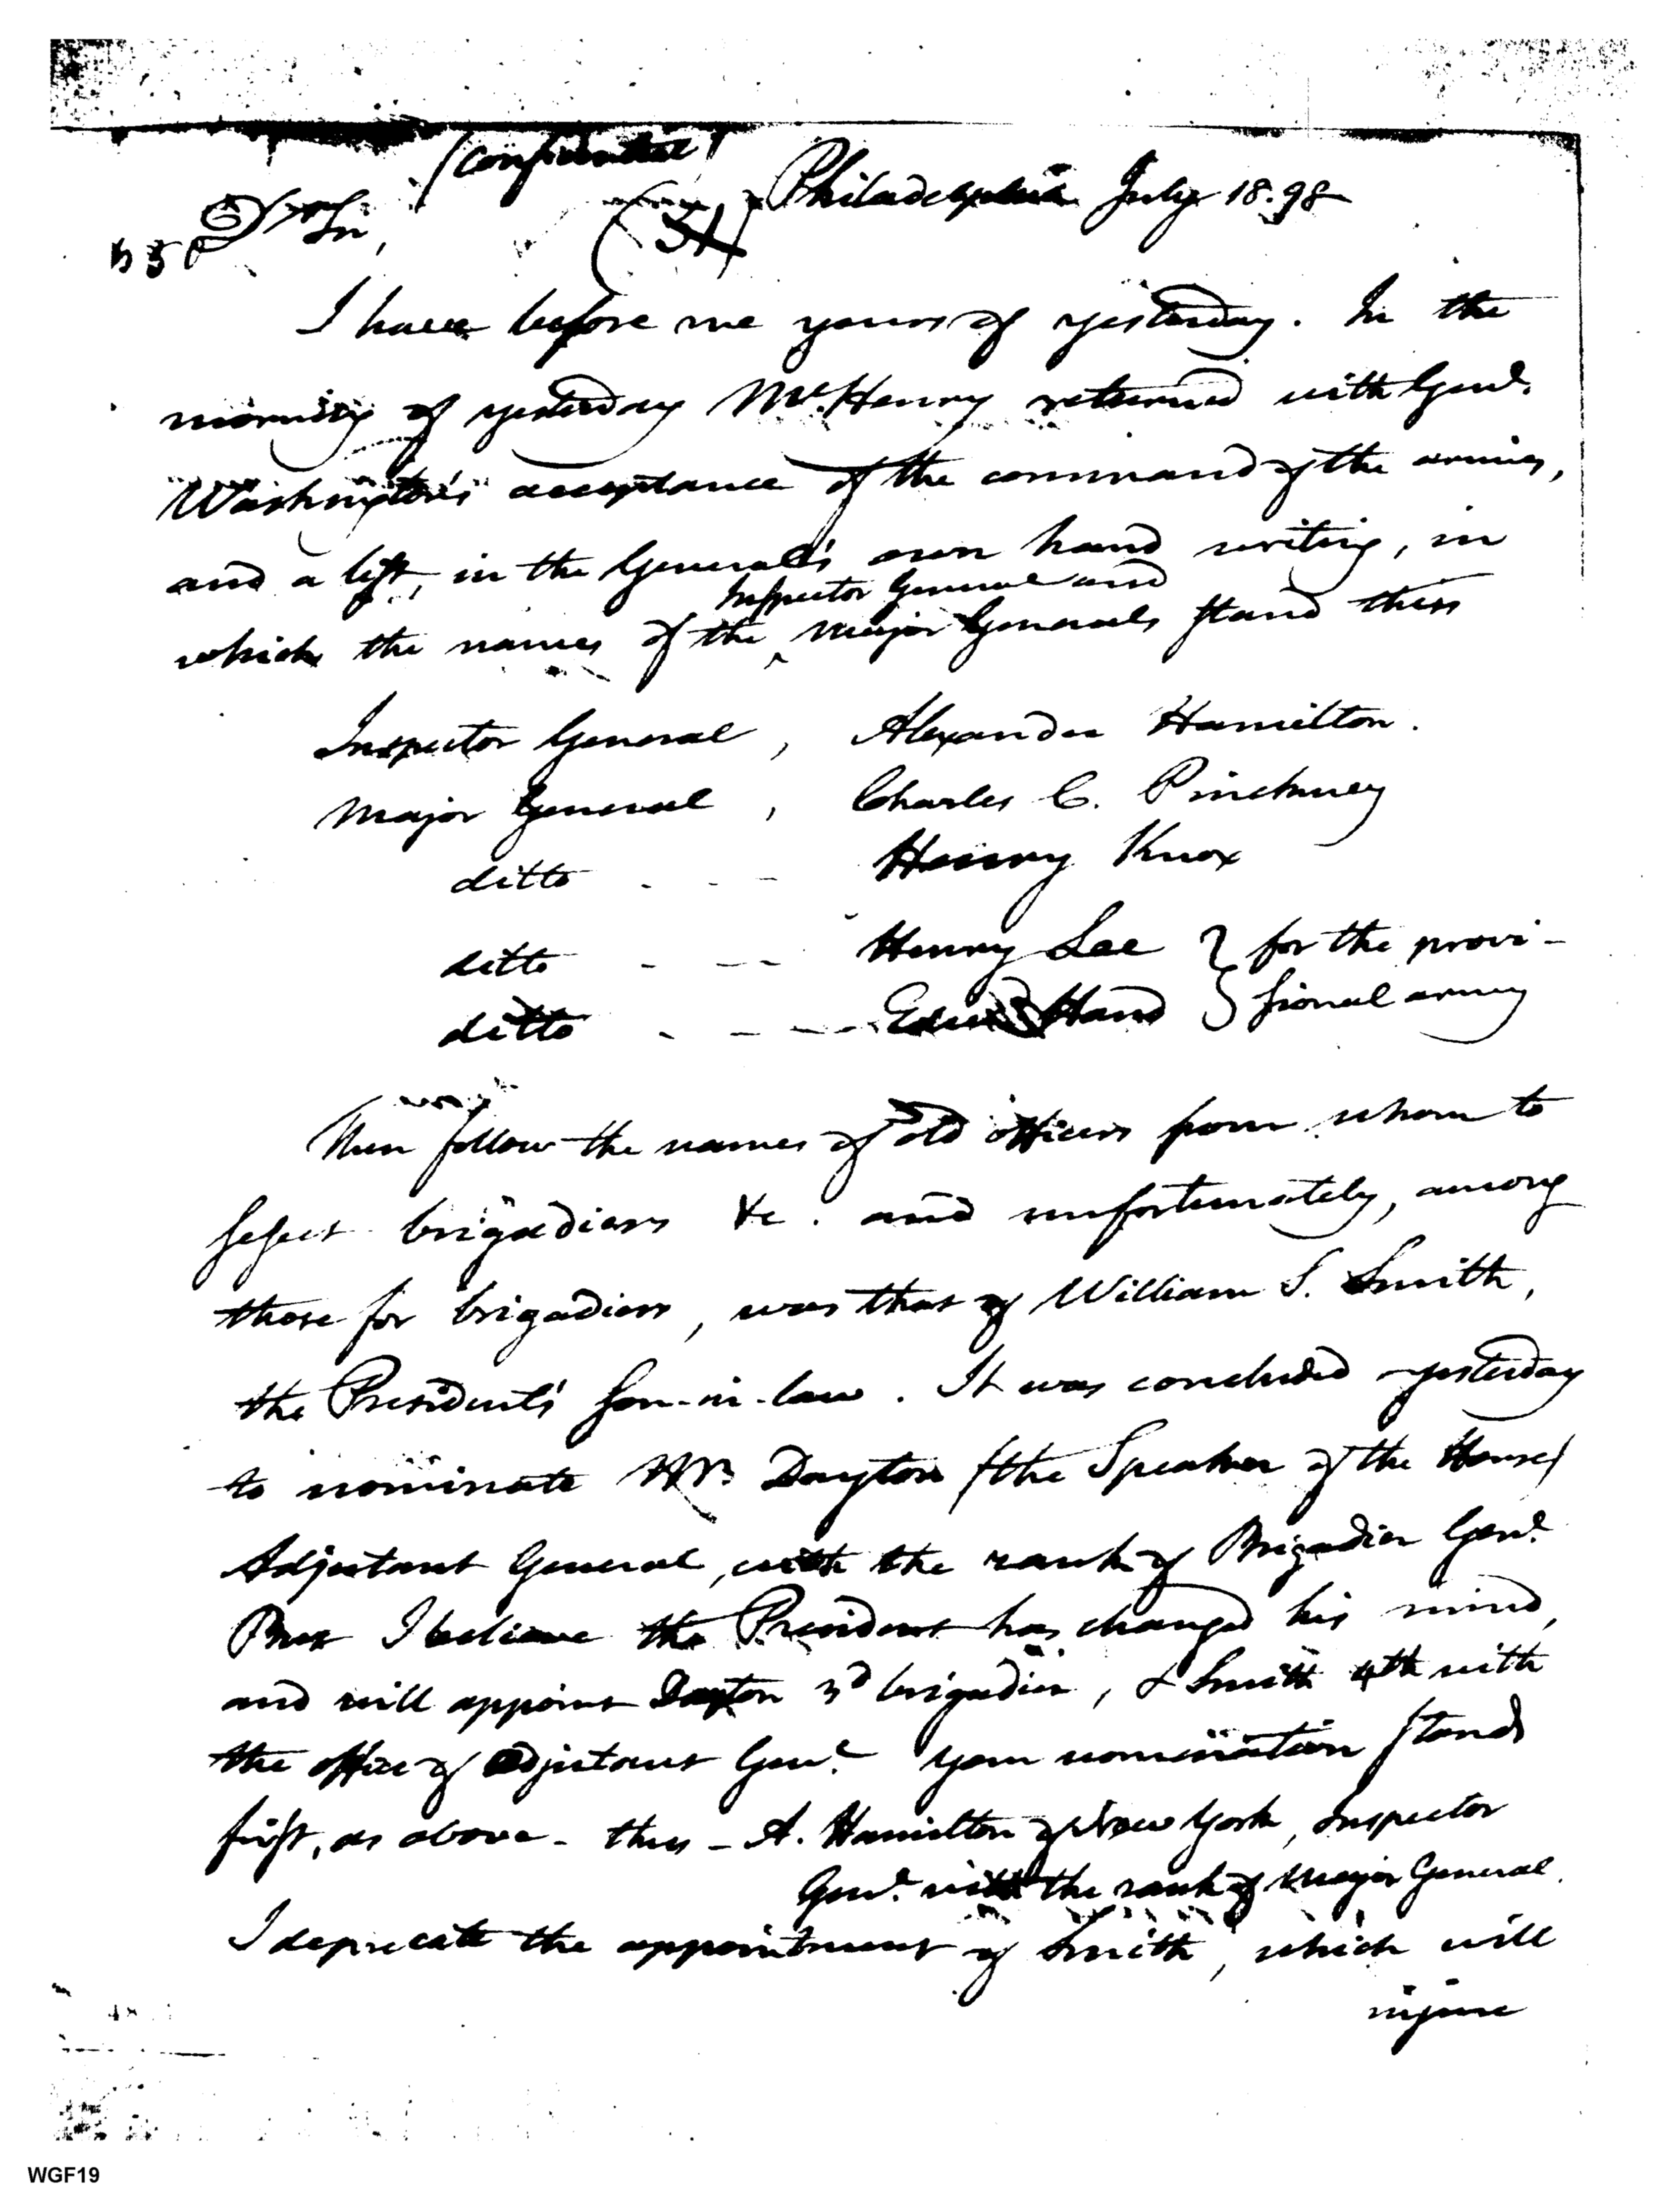 (Confidential)
Philadelphia July 18. 98
Dr. Sir,
I have before me yours of yesterday. In the
morning of yesterday McHenry returned with Genl.
Washington's acceptance of the command of the armies,
and a list, in the General's own hand writing, in
Inspector General and
which the names of the ^ Major Generals stand thus
Inspector General, Alexander Hamilton.
Major General, Charles C. Pinckney
ditto - - - Henry Knox
ditto - - - Henry Lee } for the provi-
ditto - - - Edwd. Hand } sional army
Then follow the names of old officers from whom to
select brigadiers &c. and unfortunately, among
those for brigadiers, was that of William S. Smith,
the President's son-in-law. It was concluded yesterday
to nominate Mr. Dayton (the Speaker of the House)
Adjutant General, with the rank of Brigadier Genl.
But I believe the President has changed his mind,
and will appoint Dayton 3d brigadier, & Smith 4th with
the office of adjutant Genl. Your nomination stands
first, as above - thus - A. Hamilton of New York, Inspector
Genl. with the rank of Major General.
I deprecate the appointment of Smith, which will
injure
WGF19